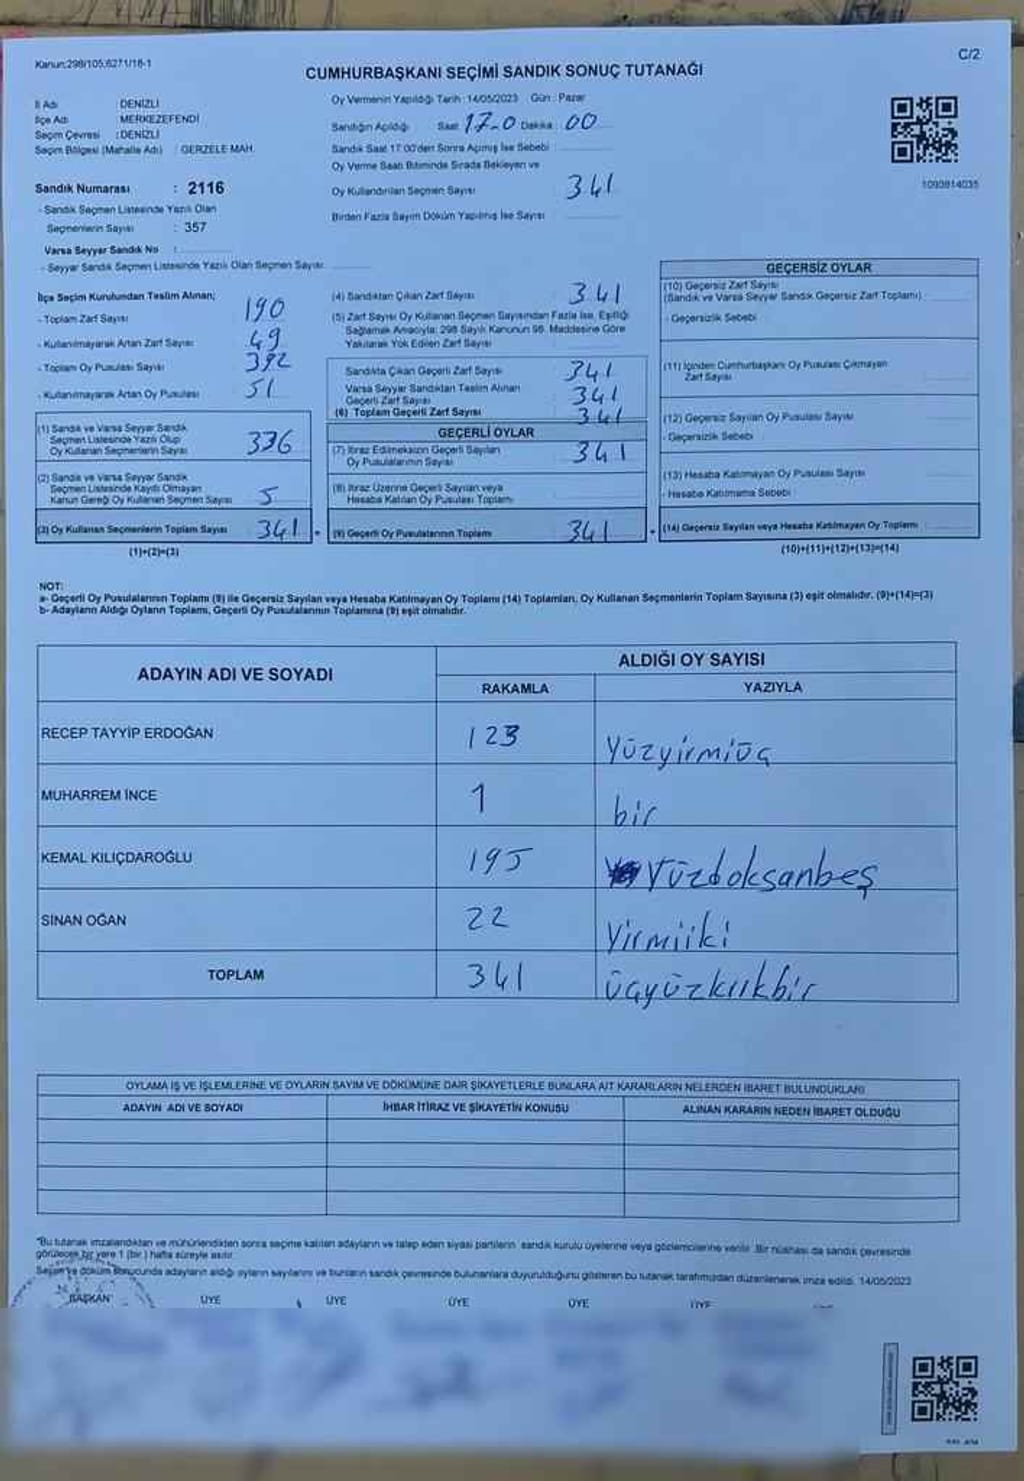 Kanun:298/105,6271/18-1
C/2
CUMHURBAŞKANI SEÇİMİ SANDIK SONUÇ TUTANAĞI
İl Adı DENİZLİ
İlçe Adı MERKEZEFENDİ
Seçim Çevresi :DENİZLİ
Seçim Bölgesi (Mahalle Adı) : GERZELE MAH.
Sandık Numarası : 2116
- Sandık Seçmen Listesinde Yazılı Olan
Seçmenlerin Sayısı : 357
Varsa Seyyar Sandık No :
- Seyyar Sandık Seçmen Listesinde Yazılı Olan Seçmen Sayısı
Oy Vermenin Yapıldığı Tarih :14/05/2023 Gün : Pazar
Sandığın Açıldığı Saat 17.0 Dakika : 00
Sandık Saat 17:00'den Sonra Açılmış İse Sebebi :
Oy Verme Saati Bitiminde Sırada Bekleyen ve
Oy Kullandırılan Seçmen Sayısı 341
Birden Fazla Sayım Döküm Yapılmış İse Sayısı
1093814035
İlçe Seçim Kurulundan Teslim Alınan;
- Toplam Zarf Sayısı 190
- Kullanılmayarak Artan Zarf Sayısı 49
- Toplam Oy Pusulası Sayısı 392
- Kullanılmayarak Artan Oy Pusulası 51
(1) Sandık ve Varsa Seyyar Sandık
Seçmen Listesinde Yazılı Olup
Oy Kullanan Seçmenlerin Sayısı 336
(2) Sandık ve Varsa Seyyar Sandık
Seçmen Listesinde Kayıtlı Olmayan
Kanun Gereği Oy Kullanan Seçmen Sayısı 5
(3) Oy Kullanan Seçmenlerin Toplam Sayısı 341
(1)+(2)=(3)
(4) Sandıktan Çıkan Zarf Sayısı 341
(5) Zarf Sayısı Oy Kullanan Seçmen Sayısından Fazla İse, Eşitliği
Sağlamak Amacıyla; 298 Sayılı Kanunun 98. Maddesine Göre
Yakılarak Yok Edilen Zarf Sayısı
Sandıkta Çıkan Geçerli Zarf Sayısı 341
Varsa Seyyar Sandıktan Teslim Alınan
Geçerli Zarf Sayısı 341
(6) Toplam Geçerli Zarf Sayısı 341
GEÇERLİ OYLAR
(7) İtiraz Edilmeksizin Geçerli Sayılan
Oy Pusulalarının Sayısı 341
(8) İtiraz Üzerine Geçerli Sayılan veya
Hesaba Katılan Oy Pusulası Toplamı
(9) Geçerli Oy Pusulalarının Toplamı 341
GEÇERSİZ OYLAR
(10) Geçersiz Zarf Sayısı
(Sandık ve Varsa Seyyar Sandık Geçersiz Zarf Toplamı)
- Geçersizlik Sebebi
(11) İçinden Cumhurbaşkanı Oy Pusulası Çıkmayan
Zarf Sayısı
(12) Geçersiz Sayılan Oy Pusulası Sayısı
- Geçersizlik Sebebi
(13) Hesaba Katılmayan Oy Pusulası Sayısı
- Hesaba Katılmama Sebebi
(14) Geçersiz Sayılan veya Hesaba Katılmayan Oy Toplamı
(10)+(11)+(12)+(13)=(14)
NOT:
a- Geçerli Oy Pusulalarının Toplamı (9) ile Geçersiz Sayılan veya Hesaba Katılmayan Oy Toplamı (14) Toplamları, Oy Kullanan Seçmenlerin Toplam Sayısına (3) eşit olmalıdır. (9)+(14)=(3)
b- Adayların Aldığı Oyların Toplamı, Geçerli Oy Pusulalarının Toplamına (9) eşit olmalıdır.
ADAYIN ADI VE SOYADI
ALDIĞI OY SAYISI
RAKAMLA YAZIYLA
RECEP TAYYİP ERDOĞAN 123 Yüzyirmiüç
MUHARREM İNCE 1 bir
KEMAL KILIÇDAROĞLU 195 Yüzdoksanbeş
SİNAN OĞAN 22 Yirmiiki
TOPLAM 341 üçyüzkırkbir
OYLAMA İŞ VE İŞLEMLERİNE VE OYLARIN SAYIM VE DÖKÜMÜNE DAİR ŞİKAYETLERLE BUNLARA AİT KARARLARIN NELERDEN İBARET BULUNDUKLARI
ADAYIN ADI VE SOYADI İHBAR İTİRAZ VE ŞİKAYETİN KONUSU ALINAN KARARIN NEDEN İBARET OLDUĞU
*Bu tutanak imzalandıktan ve mühürlendikten sonra seçime katılan adayların ve talep eden siyasi partilerin sandık kurulu üyelerine veya gözlemcilerine verilir. Bir nüshası da sandık çevresinde
görülecek bir yere 1 (bir) hafta süreyle asılır.
Seçim ve döküm sonucunda adayların aldığı oyların sayılarını ve bunların sandık çevresinde bulunanlara duyurulduğunu gösteren bu tutanak tarafımızdan düzenlenerek imza edildi. 14/05/2023
BAŞKAN ÜYE ÜYE ÜYE ÜYE ÜYE